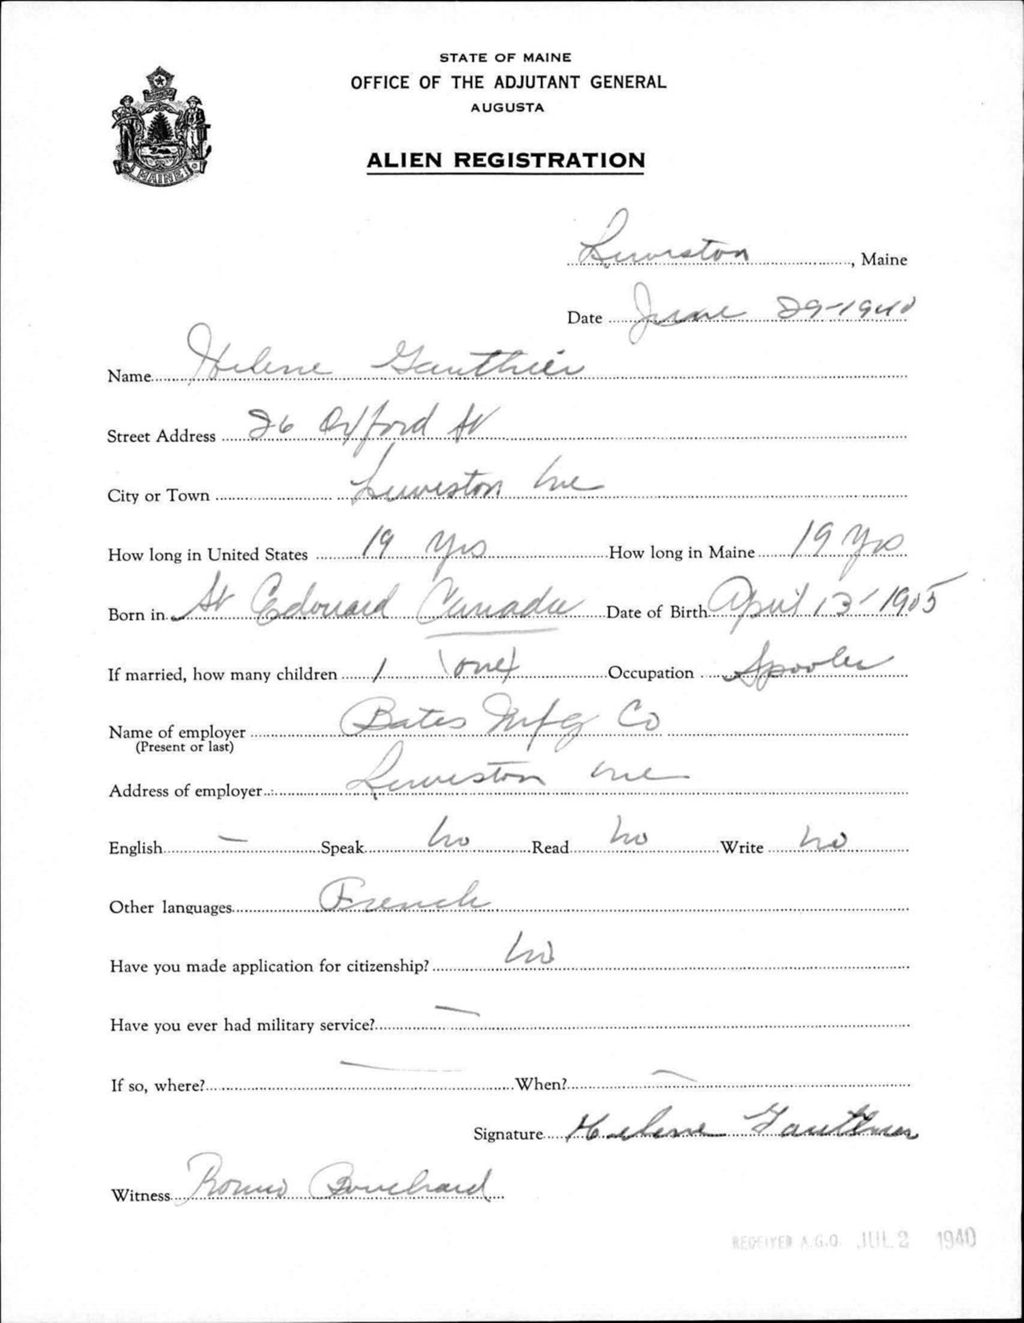 STATE OF MAINE
OFFICE OF THE ADJUTANT GENERAL
AUGUSTA
MAINE
ALIEN REGISTRATION
Lewiston, Maine
Date June 29-1940
Name Helene Gauthier
Street Address 26 Oxford St
City or Town Lewiston Me
How long in United States 19 Yrs How long in Maine 19 Yrs
Born in St Edouard Canada Date of Birth April 13-1905
If married, how many children 1 (one) Occupation Spooler
Name of employer Bates Mfg Co
(Present or last)
Address of employer Lewiston Me
English - Speak No Read No Write No
Other languages French
Have you made application for citizenship? No
Have you ever had military service? -
If so, where? - When? -
Signature Helene Gauthier
Witness Romeo Bouchard
RECEIVED A.G.O. JUL 2 1940